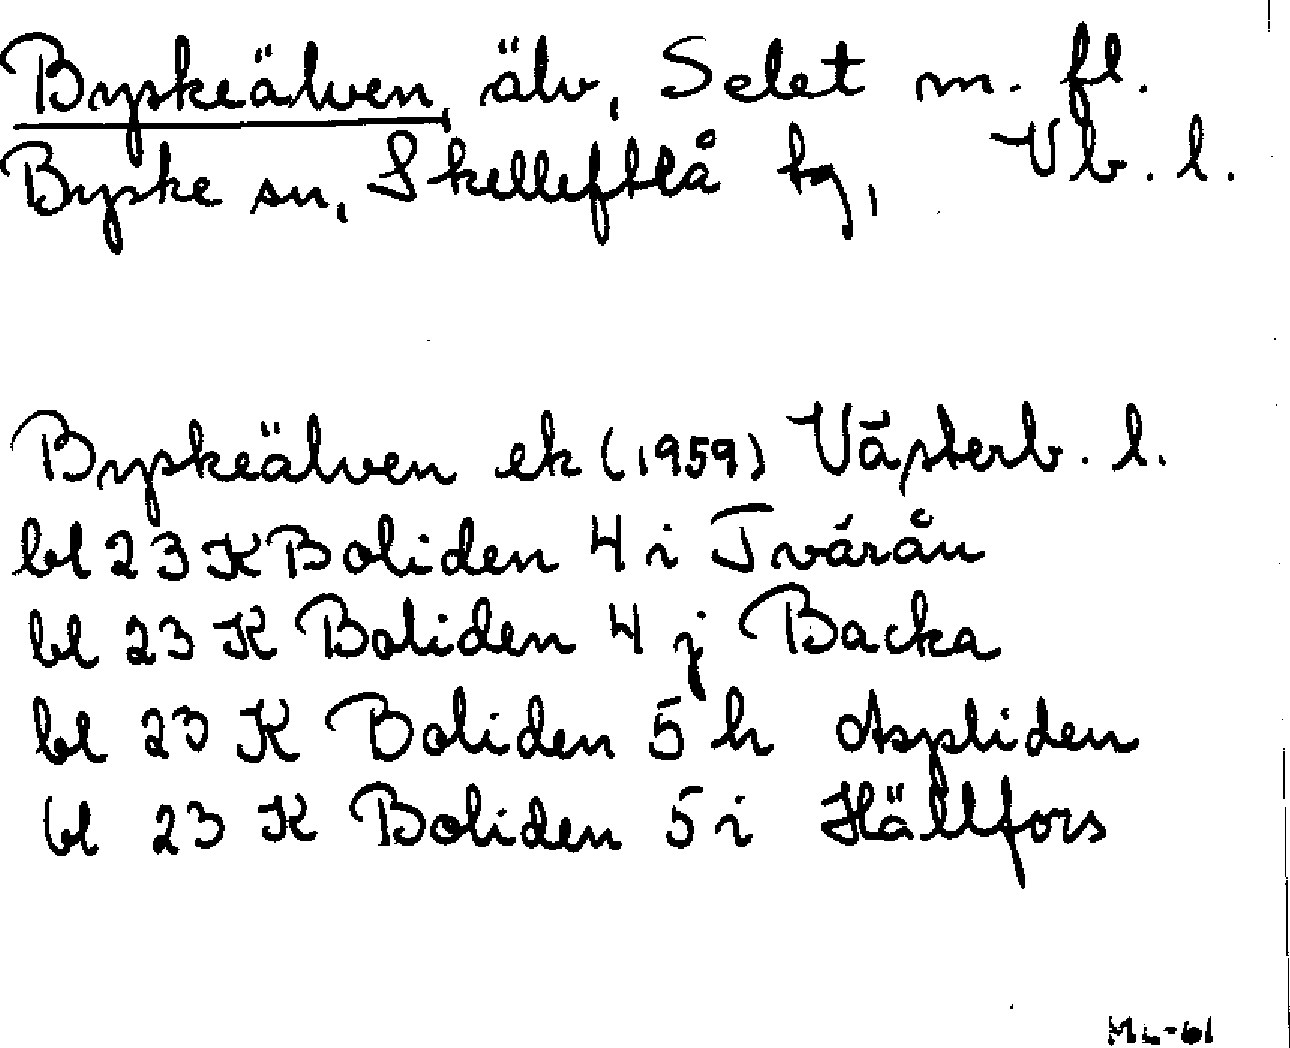 Byskeälven, älv, Selet m. fl.
Byske sn, Skellefteå tg, Vb. l.
Byskeälven ek (1959) Västerb. l.
bl 23 K Boliden 4 i Tvärån
bl 23 K Boliden 4 j Backa
bl 23 K Boliden 5 h Aspliden
bl 23 K Boliden 5 i Hällfors